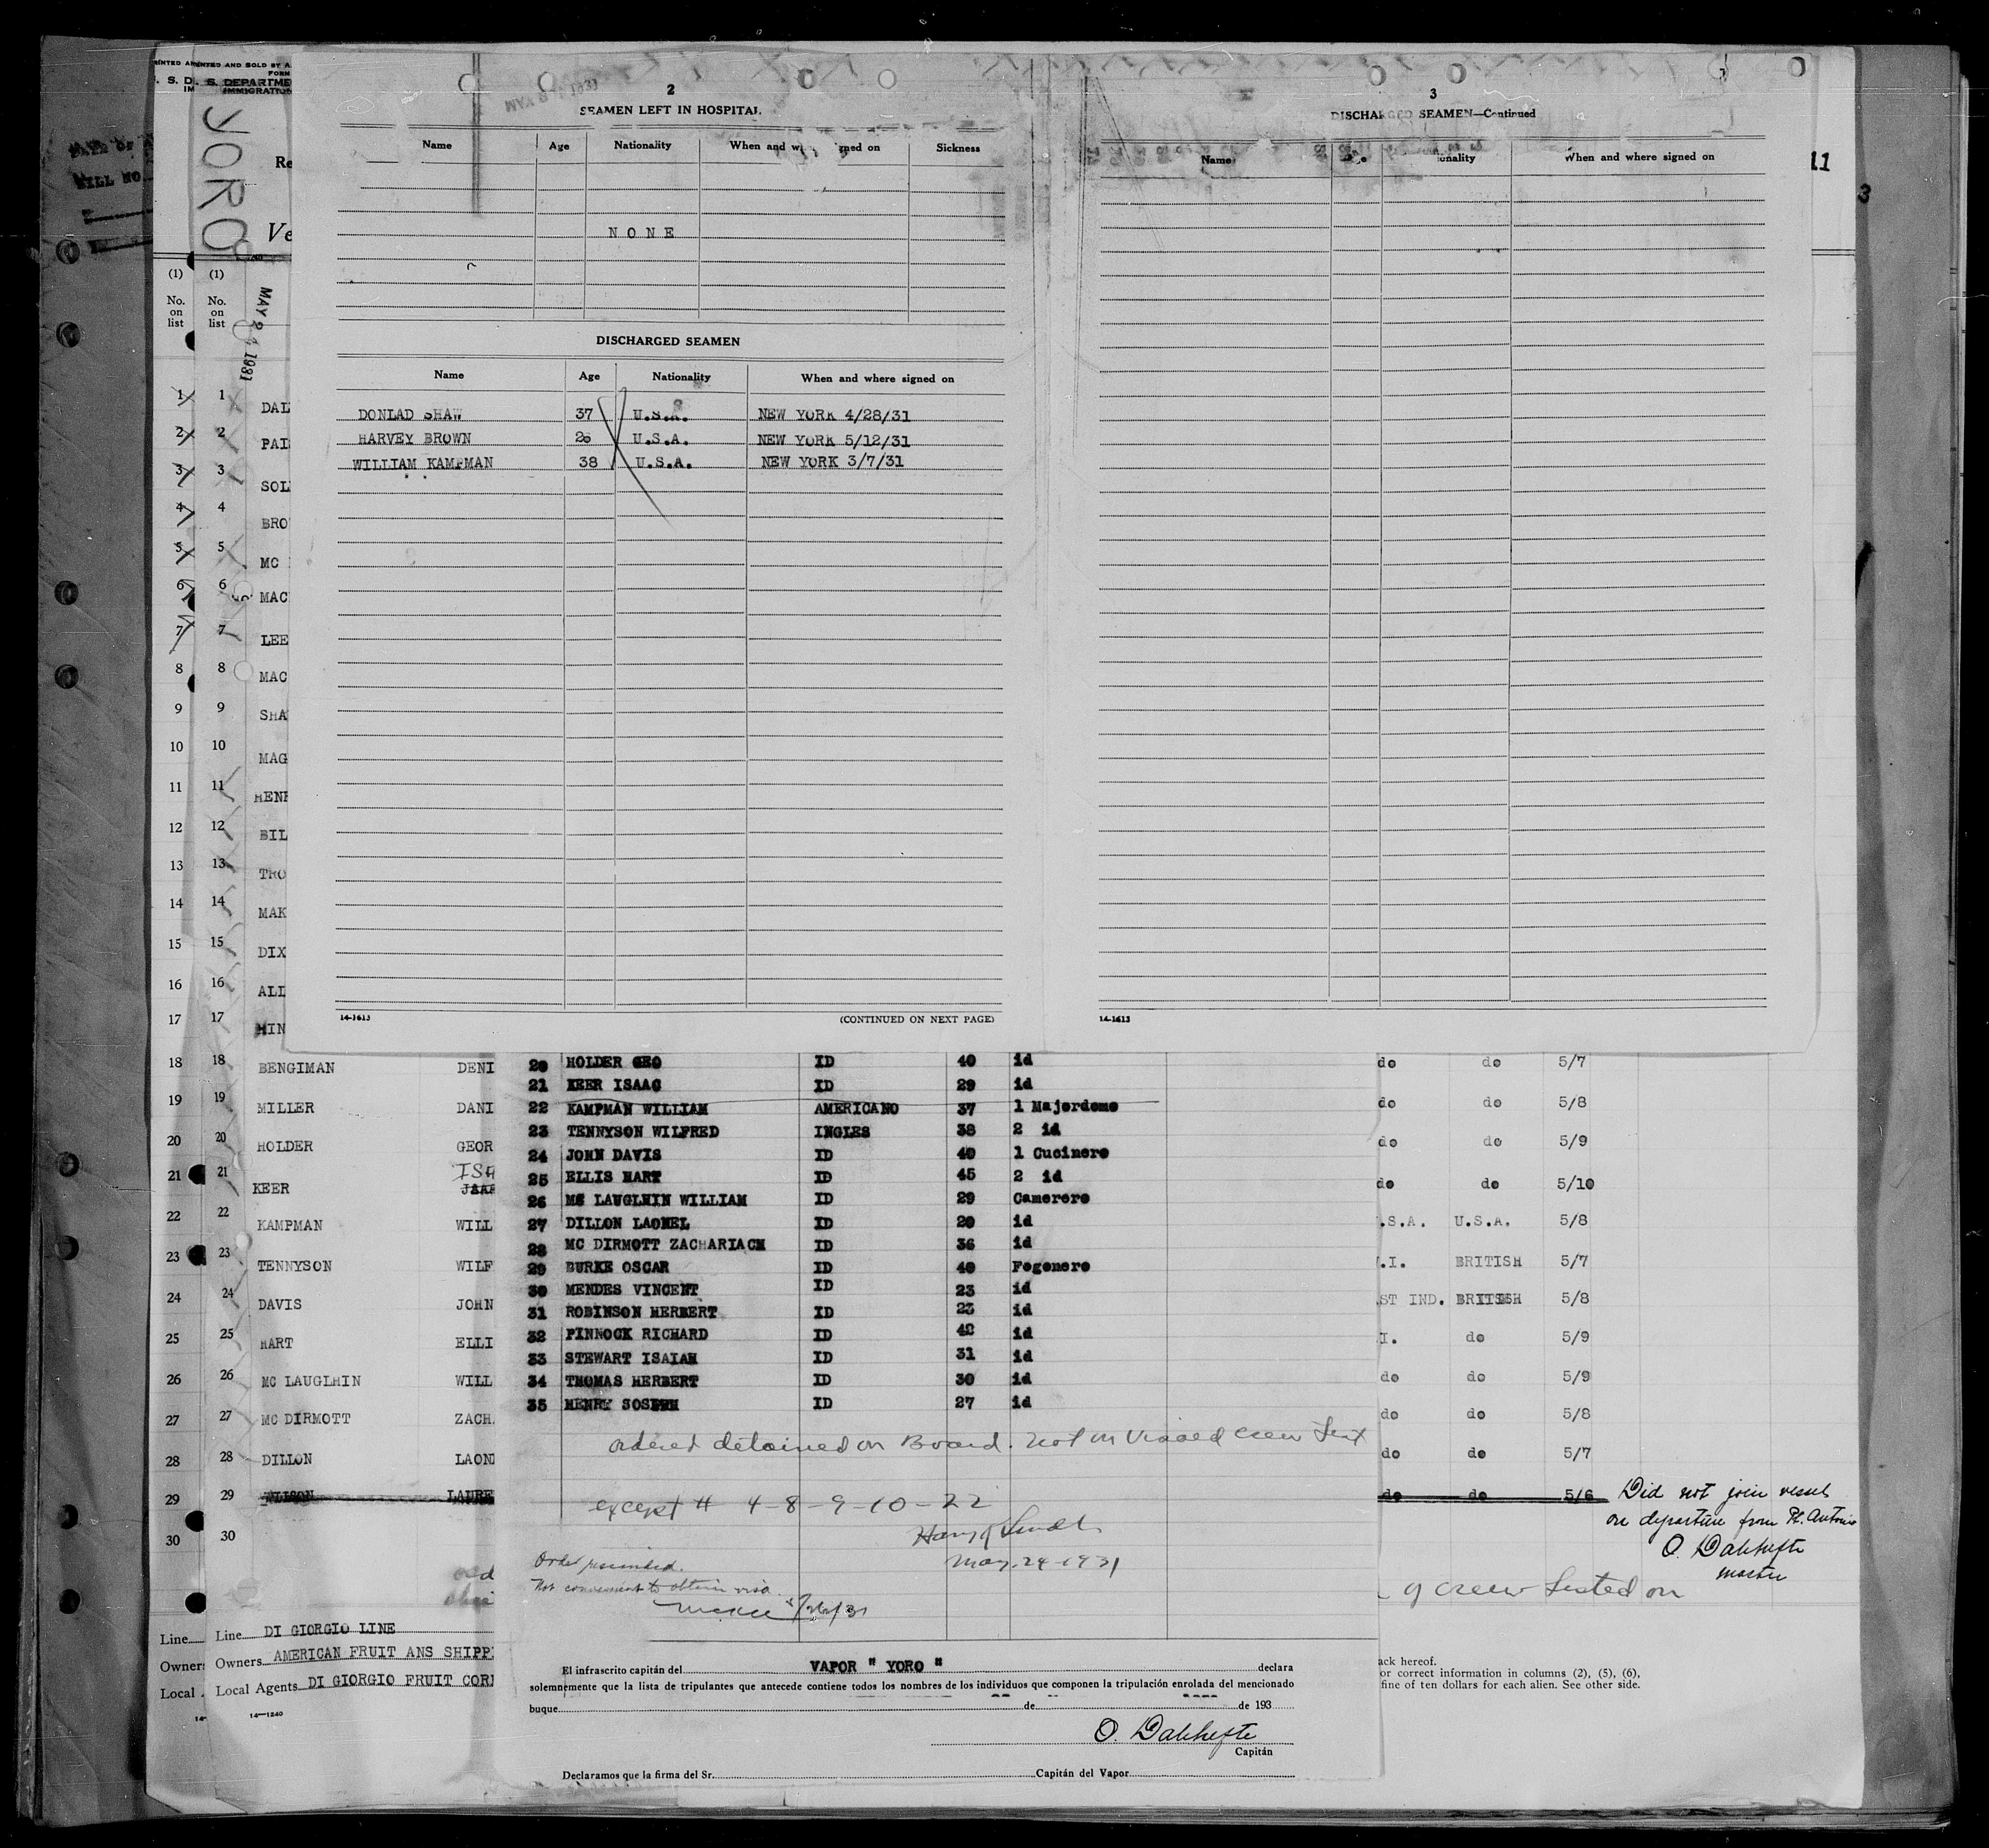 2
SEAMEN LEFT IN HOSPITAL
Name Age Nationality When and signed on Sickness
NONE
DISCHARGED SEAMEN
Name Age Nationality When and where signed on
DONLAD SHAW 37 U.S.A. NEW YORK 4/28/31
HARVEY BROWN 26 U.S.A. NEW YORK 5/12/31
WILLIAM KAMPMAN 38 U.S.A. NEW YORK 3/7/31
14-1613 (CONTINUED ON NEXT PAGE)
3
DISCHARGED SEAMEN—Continued
Name When and where signed on
14-1613
11
3
YORO
MAY 24 1931
(1) (1)
No. on list No. on list
1 1 DAL
2 2 PAI
3 3 SOL
4 4 BRO
5 5 MC
6 6 MAC
7 7 LEE
8 8 MAC
9 9 SHA
10 10 MAG
11 11 HEN
12 12 BIL
13 13 TRO
14 14 MAK
15 15 DIX
16 16 ALL
17 17 HIN
18 18 BENGIMAN DENI
19 19 MILLER DANI
20 20 HOLDER GEOR
21 21 KEER ISA
22 22 KAMPMAN WILL
23 23 TENNYSON WILF
24 24 DAVIS JOHN
25 25 HART ELLI
26 26 MC LAUGLHIN WILL
27 27 MC DIRMOTT ZACH
28 28 DILLON LAON
29 29 WILSON LAURE
30 30
Line
Line DI GIORGIO LINE
Owners
Owners AMERICAN FRUIT ANS SHIPP
Local
Local Agents DI GIORGIO FRUIT COR
14—1240
20 HOLDER GEO ID 40 id
21 KEER ISAAC ID 29 id
22 KAMPMAN WILLIAM AMERICANO 37 1 Majordomo
23 TENNYSON WILFRED INGLES 38 2 id
24 JOHN DAVIS ID 40 1 Cucinero
25 ELLIS HART ID 45 2 id
26 MC LAUGLHIN WILLIAM ID 29 Camerero
27 DILLON LAONEL ID 20 id
28 MC DIRMOTT ZACHARIACH ID 36 id
29 BURKE OSCAR ID 40 Fogonero
30 MENDES VINCENT ID 23 id
31 ROBINSON HERBERT ID 23 id
32 PINNOCK RICHARD ID 42 id
33 STEWART ISAIAH ID 31 id
34 THOMAS HERBERT ID 30 id
35 HENRY SOSEPH ID 27 id
ordered detained on Board. not on visaed crew list
except # 4-8-9-10-22
May. 24-1931
Order rescinded.
Not convenient to obtain visa.
El infrascrito capitán del VAPOR " YORO " declara
solemnemente que la lista de tripulantes que antecede contiene todos los nombres de los individuos que componen la tripulación enrolada del mencionado
buque de de 193
O. Dahhefte
Capitán
Declaramos que la firma del Sr. Capitán del Vapor
do do 5/7
do do 5/8
do do 5/9
do do 5/10
.S.A. U.S.A. 5/8
.I. BRITISH 5/7
ST IND. BRITISH 5/8
I. do 5/9
do do 5/9
do do 5/8
do do 5/7
do do 5/6 Did not join vessel
on departure from Pt. Antonio
O. Dahhefte
master
of crew listed on
ack hereof.
or correct information in columns (2), (5), (6),
fine of ten dollars for each alien. See other side.